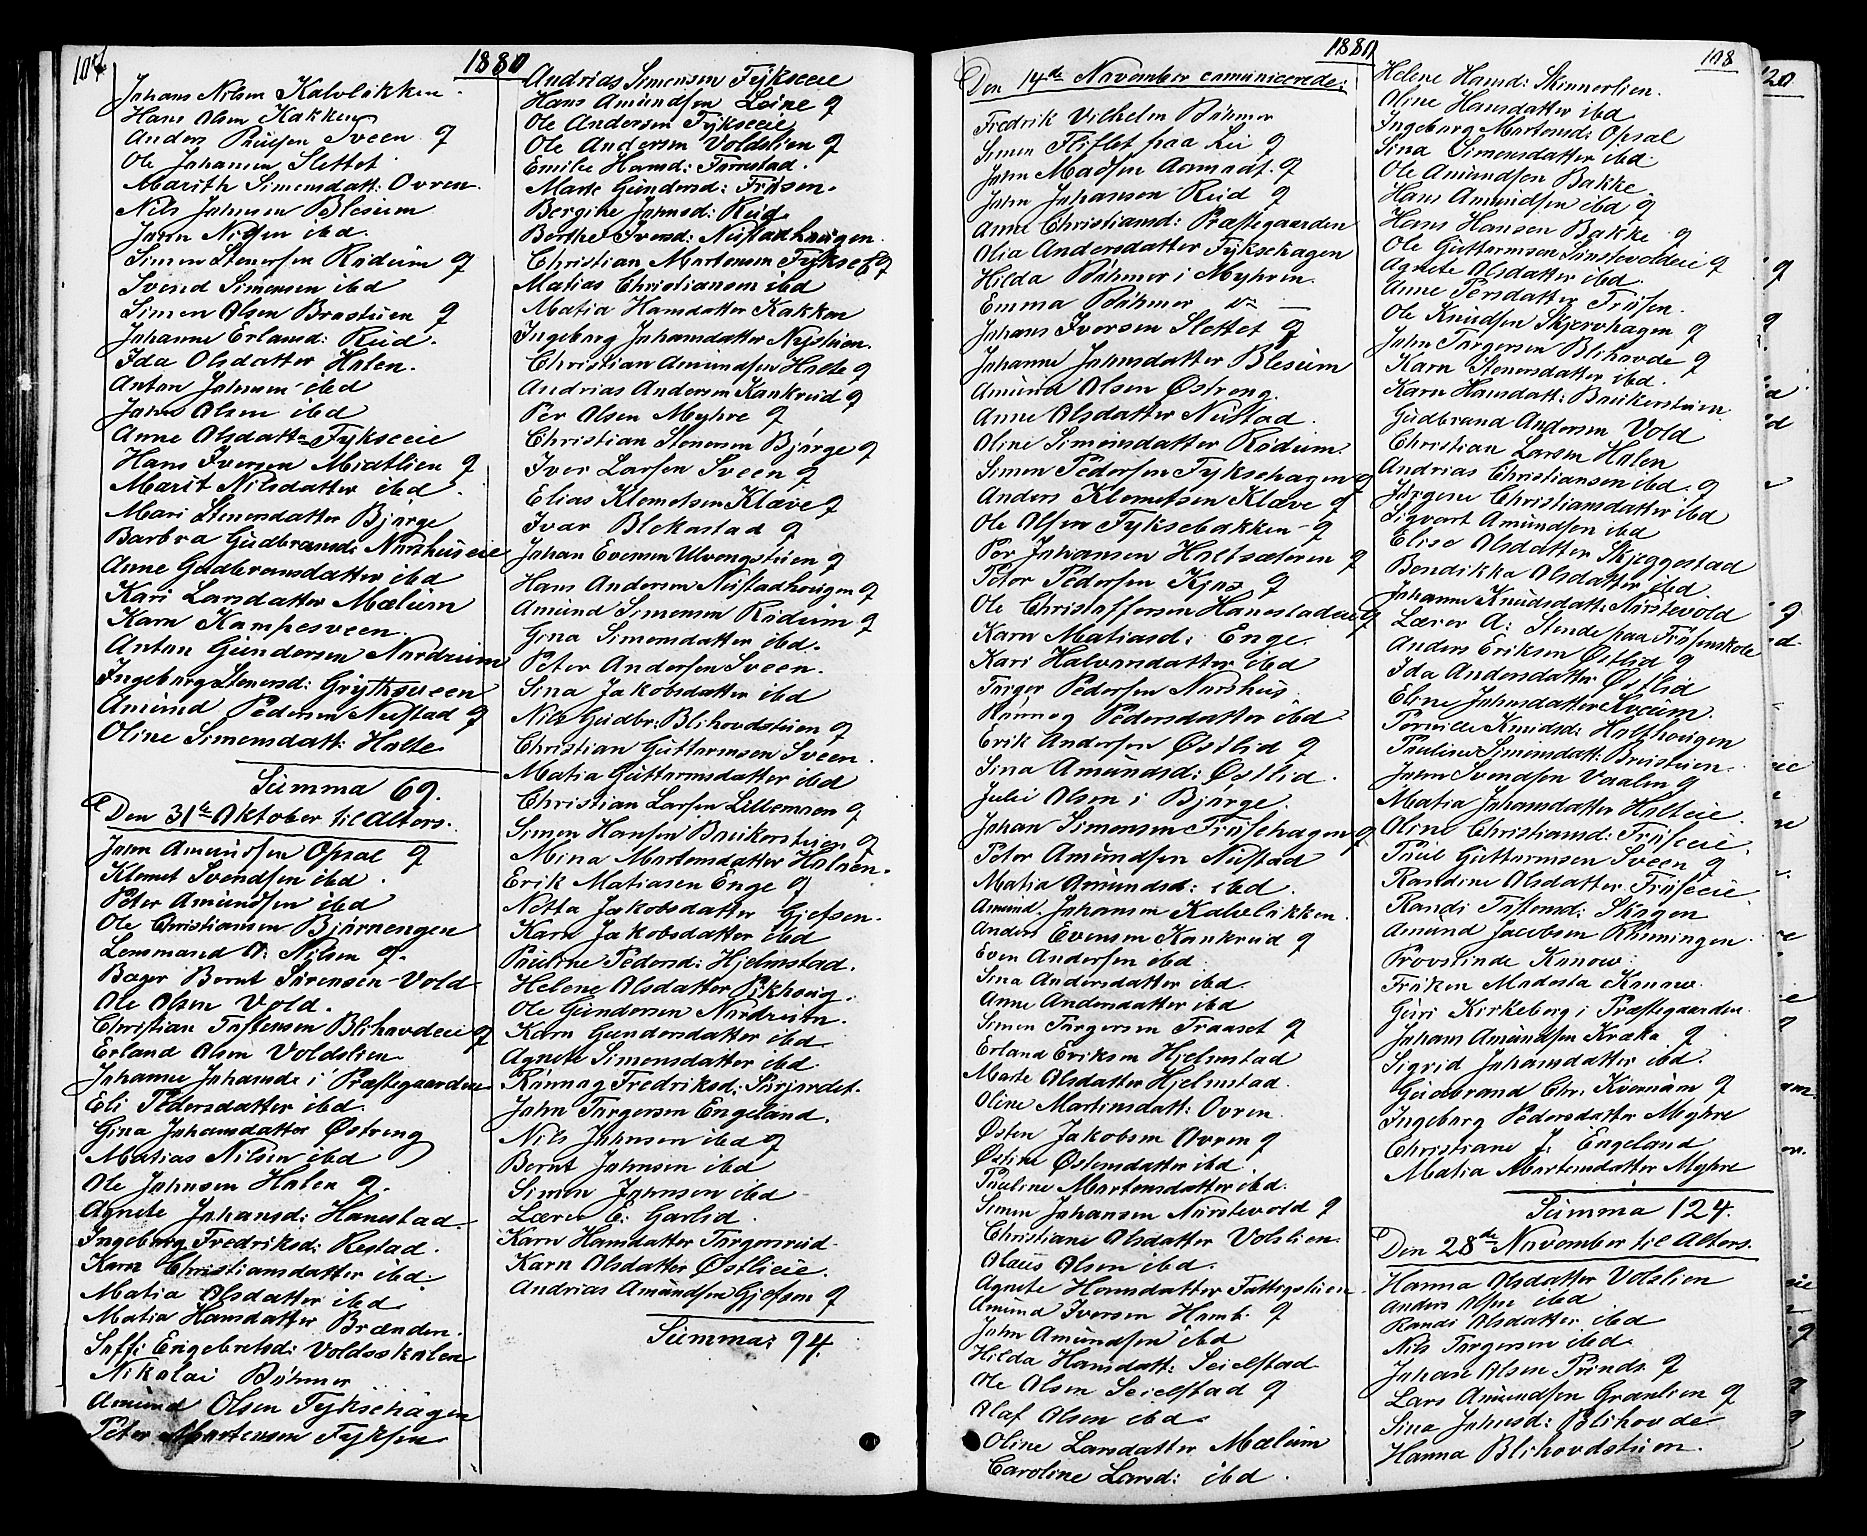 107
1880
Johans Nilsen Kalvløkken
Hans Olsen Kakken
Anders Paulsen Sveen g
Ole Johansen Slettet
Marith Simensdatt: Ovren
Nils Johnsen Blesum
John Nilsen ibd.
Simen Stenersen Rødum g
Svend Simensen ibd
Simen Olsen Brastuen g
Johanne Erlansd: Rud.
Ida Olsdatter Holen.
Anton Johnsen ibd
John Olsen ibd
Anne Olsdattr Fykseeie
Hans Iversen Midtlien g
Marit Nilsdatter ibd.
Mari Stenersdatter Bjørge
Barbra Gudbransd: Norshuseie
Anne Gudbransdatter ibd
Kari Larsdatter Mælum
Karn Kampesveen.
Anton Gundersen Nordrum
Ingeborg Stenersd: Grythsveen
Amund Pedersen Nustad g
Oline Simensdatt: Holte
Summa 69.
Den 31te Oktober til Alters.
John Amundsen Opsal g
Klemet Svendsen ibd.
Peter Amundsen ibd
Ole Christiansen Bjørnengen
Lensmand O: Nilsen g.
Bager Bernt Sørensen Vold
Ole Olsen Vold.
Christian Tostensen Blihovdeie g
Erland Olsen Voldslien
Johanne Johansd: i Præstegaarden
Eli Pedersdatter ibd.
Gina Johansdatter Østreng
Matias Nilsen ibd
Ole Johnsen Holen g.
Agnete Johansd: Hanestad
Ingeborg Fredriksd: Restad.
Karn Christiansdatter ibd.
Matia Olsdatter ibd
Matia Hansdatter Brænden.
Soffi Engebretsd: Voldsskolen
Nikolai Bøhmer
Amund Olsen Fyksehagen
Peter Martensen Fyksen
Andrias Simensen Fykseeie
Hans Amundsen Leine g
Ole Andersen Fykseeie
Ole Andersen Voldslien g
Emilie Hansd: Forrestad.
Marte Gundersd: Frøsen.
Bergine Johnsd: Rud.
Berthe Iversd: Nustadhaugen.
Christian Martensen Fykse g
Matias Christiansen ibd
Matia Hansdatter Kakken
Ingeborg Johansdatter Nystuen.
Christian Amundsen Holte g
Andrias Andersen Kankrud g
Per Olsen Myhre g
Christian Stenersen Bjørge g
Iver Larsen Sveen g
Elias Klemetsen Klæve g
Ivar Blekastad g
Johan Evensen Ulvengstuen g
Hans Andersen Nustadhougen g
Amund Simensen Rødum g
Gina Simensdatter ibd.
Peter Andersen Sveen.
Sina Jakobsdatter ibd
Nils Gudbr: Blihovdstuen g
Christian Guttormsen Sveen.
Matia Guttormsdatter ibd
Christian Larsen Lillemoen g
Simen Hansen Baukerstuen g
Mina Martensdatter Holsen.
Erik Matiasen Enge g
Netta Jakobsdatter Gjefsen.
Karn Jakobsdatter ibd
Pauline Pedersd: Hjelmstad.
Helene Olsdatter Pikhoug.
Ole Gundersen Nordrum.
Karn Gundersdatter ibd
Agnete Simensdatter ibd
Rønnog Fredriksd: Sørjordet.
John Torgersen Engeland.
Nils Johnsen ibd g
Bernt Johnsen ibd
Simen Johnsen ibd
Lærer E: Garlid.
Karn Hansdatter Torgersrud
Karn Olsdatter Østlieie.
Andrias Amundsen Gjefsen g
Summa: 94.
1880
108
Den 14de November comunicerede:
Fredrik Vilhelm Bøhmer
Simen Fliflet paa Lei g
John Madsen Aamodt. g
John Johansen Rud g
Anne Christiansd: Præstegaarden
Olia Andersdatter Fyksehagen
Hilda Bøhmer i Myhren.
Emma Bøhmer do —
Johans Iversen Slettet g
Johanne Johnsdatter Blesum
Amund Olsen Østreng.
Anne Olsdatter Nustad.
Oline Simensdatter Rødum.
Simen Pedersen Fyksehagen g
Anders Klemetsen Klæve g
Ole Olsen Fyksebakken g
Per Johansen Holtsæteren g
Peter Pedersen Kjos g
Ole Christoffersen Hanestadeie g
Karn Matiasd: Enge.
Kari Halvorsdatter ibd
Torger Pedersen Norshus.
Rønnog Pedersdatter ibd
Erik Andersen Østlid g
Sina Amundsd: Østlid.
Juli Olsen i Bjørge.
Johan Simensen Frøsehagen g
Peter Amundsen Nustad
Matia Amundsd: ibd.
Amund Johansen Kalveløkken.
Anders Evensen Kankrud g
Even Andersen ibd
Sina Andersdatter ibd.
Anne Andersdatter ibd
Simen Torgersen Traaset g
Erland Eriksen Hjelmstad
Marte Olsdatter Hjelmstad.
Oline Martinsdatt: Ovren.
Østen Jakobsen Ovren g
Østine Østensdatter ibd.
Pauline Martensdatter ibd.
Simen Johansen Norstevold g
Christiane Olsdatter Volslien.
Olaus Olsen ibd.
Agnete Hansdatter Fattigslien
Amund Iversen Hamb. g
John Amundsen ibd
Hilda Hansdatt: Seielstad
Ole Olsen Seielstad g
Olaf Olsen ibd
Oline Larsdatter Mælum
Caroline Larsd: ibd.
Helene Hansd: Skinnerlien.
Oline Hansdatter ibd
Ingeborg Martensd: Opsal
Sina Simensdatter ibd.
Ole Amundsen Bakke.
Hans Amundsen ibd g
Hans Hansen Bakke g
Ole Guttormsen Sønstevoldeie g
Agnete Olsdatter ibd.
Anne Persdatter Frøsen.
Ole Knudsen Skjervhagen g
John Torgersen Blihovde g
Karn Stenersdatter ibd.
Karn Hansdatt: Baukerstuen
Gudbrand Andersen Vold
Christian Larsen Holen
Andrias Christiansen ibd. g
Jørgine Christiansdatter ibd
Sigvart Amundsen ibd
Elise Olsdatter Skjeggestad
Bendikka Olsdatter ibd.
Johanne Knudsdatt: Norstevold
Lærer A: Stende paa Frøsenskole
Anders Eriksen Østlid g
Ida Andersdatter Østlid
Eline Johnsdatter Kveum.
Pernille Knudsd: Holthougen
Pauline Simensdatt: Breistuen.
John Svendsen Vaalen g
Matia Johansdatter Holteie.
Oline Christiansd: Frøseeie.
Paul Guttormsen Sveen g
Randine Olsdatter Frøseeie.
Randi Tostensd: Skogen
Amund Jacobsen Rønningen.
Provstinde Kanow.
Frøken Modesta Kanow.
Guri Kirkeberg i Præstegaarden
Johans Amundsen Kræke g
Sigrid Johansdatter ibd.
Gudbrand Chr: Kvernum g
Ingeborg Pedersdatter Myhre
Christiane J. Engeland
Matia Martensdatter Myhre
Summa 124.
Den 28de November til Alters.
Hanna Olsdatter Volslien
Anders Olsen ibd
Randi Olsdatter ibd
Nils Torgersen ibd.
Johan Olsen Trinds g
Lars Amundsen Granlien g
Sina Johnsd: Blihovde
Hanna Blihovdstuen.
120